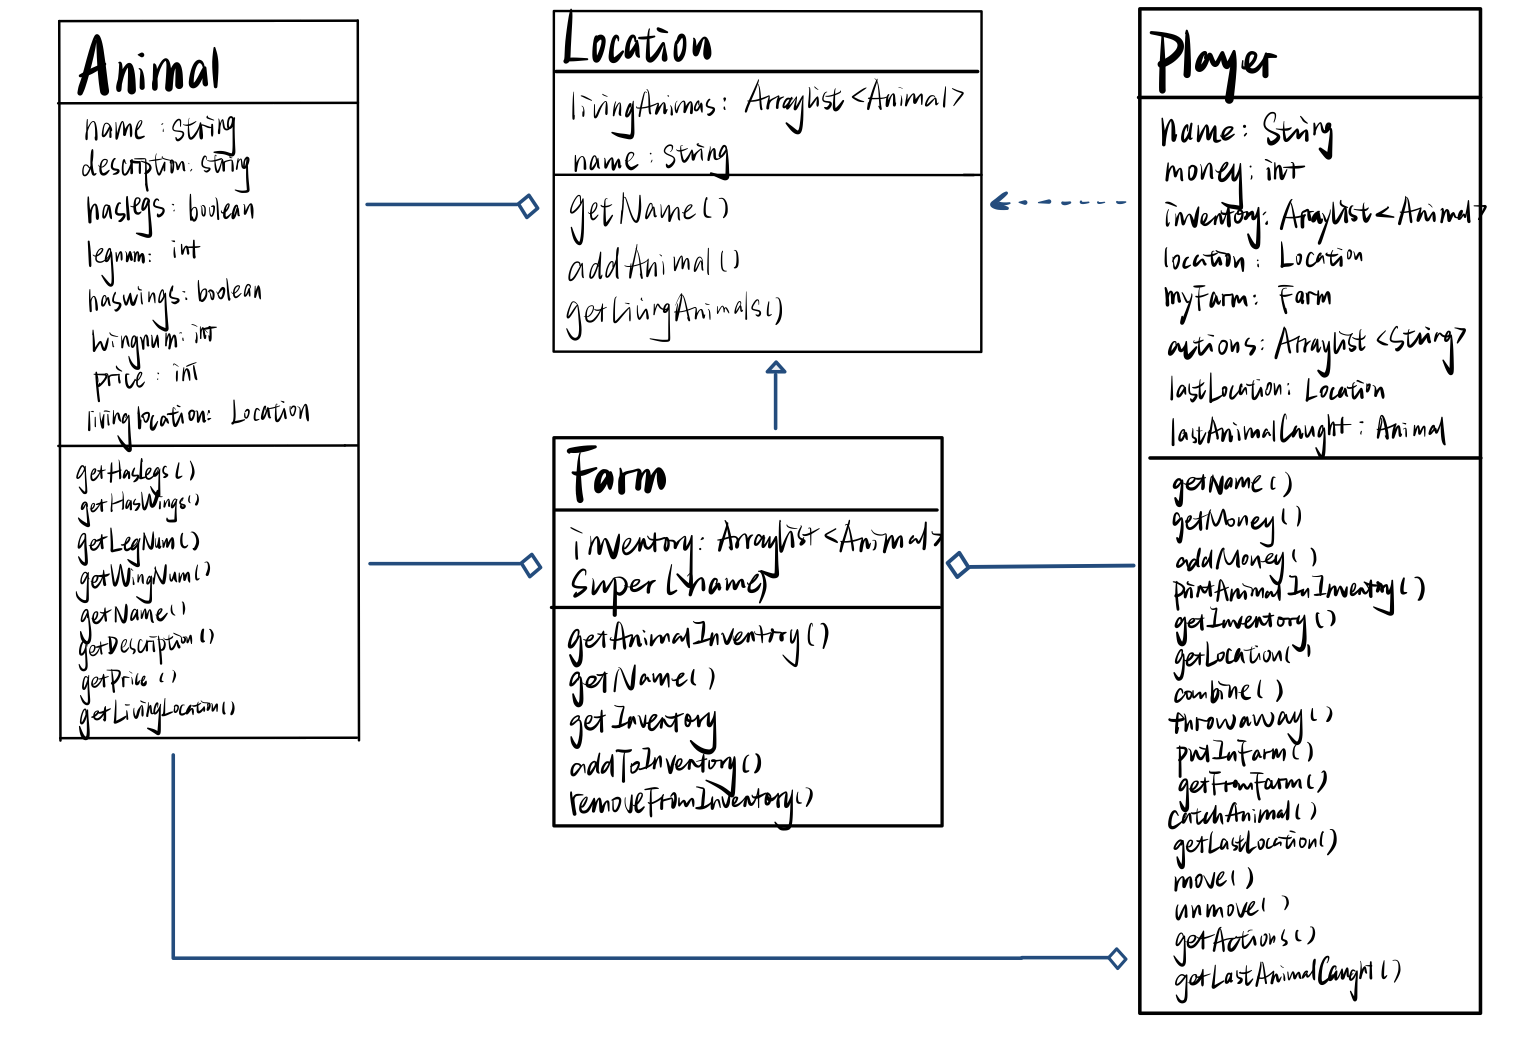 Animal
name : String
description: String
haslegs : boolean
legnum: int
haswings: boolean
wingnum: int
price : int
livinglocation: Location
getHaslegs()
getHasWings()
getLegNum()
getWingNum()
getName()
getDescription()
getPrice ()
getLivingLocation()
Location
livingAnimas: Arraylist <Animal>
name : String
getName()
addAnimal()
getLivingAnimals()
Farm
inventory: Arraylist <Animal>
Super (name)
getAnimalInventory()
getName()
getInventory
addToInventory()
removeFromInventory()
Player
name : String
money : int
inventory: Arraylist <Animal>
location : Location
myFarm: Farm
actions: Arraylist <String>
lastLocation: Location
lastAnimalCaught : Animal
getName()
getMoney()
addMoney()
printAnimalInInventory()
getInventory()
getLocation()
combine()
throwaway()
putInFarm()
getFromFarm()
catchAnimal()
getLastLocation()
move()
unmove()
getActions()
getLastAnimalCaught()